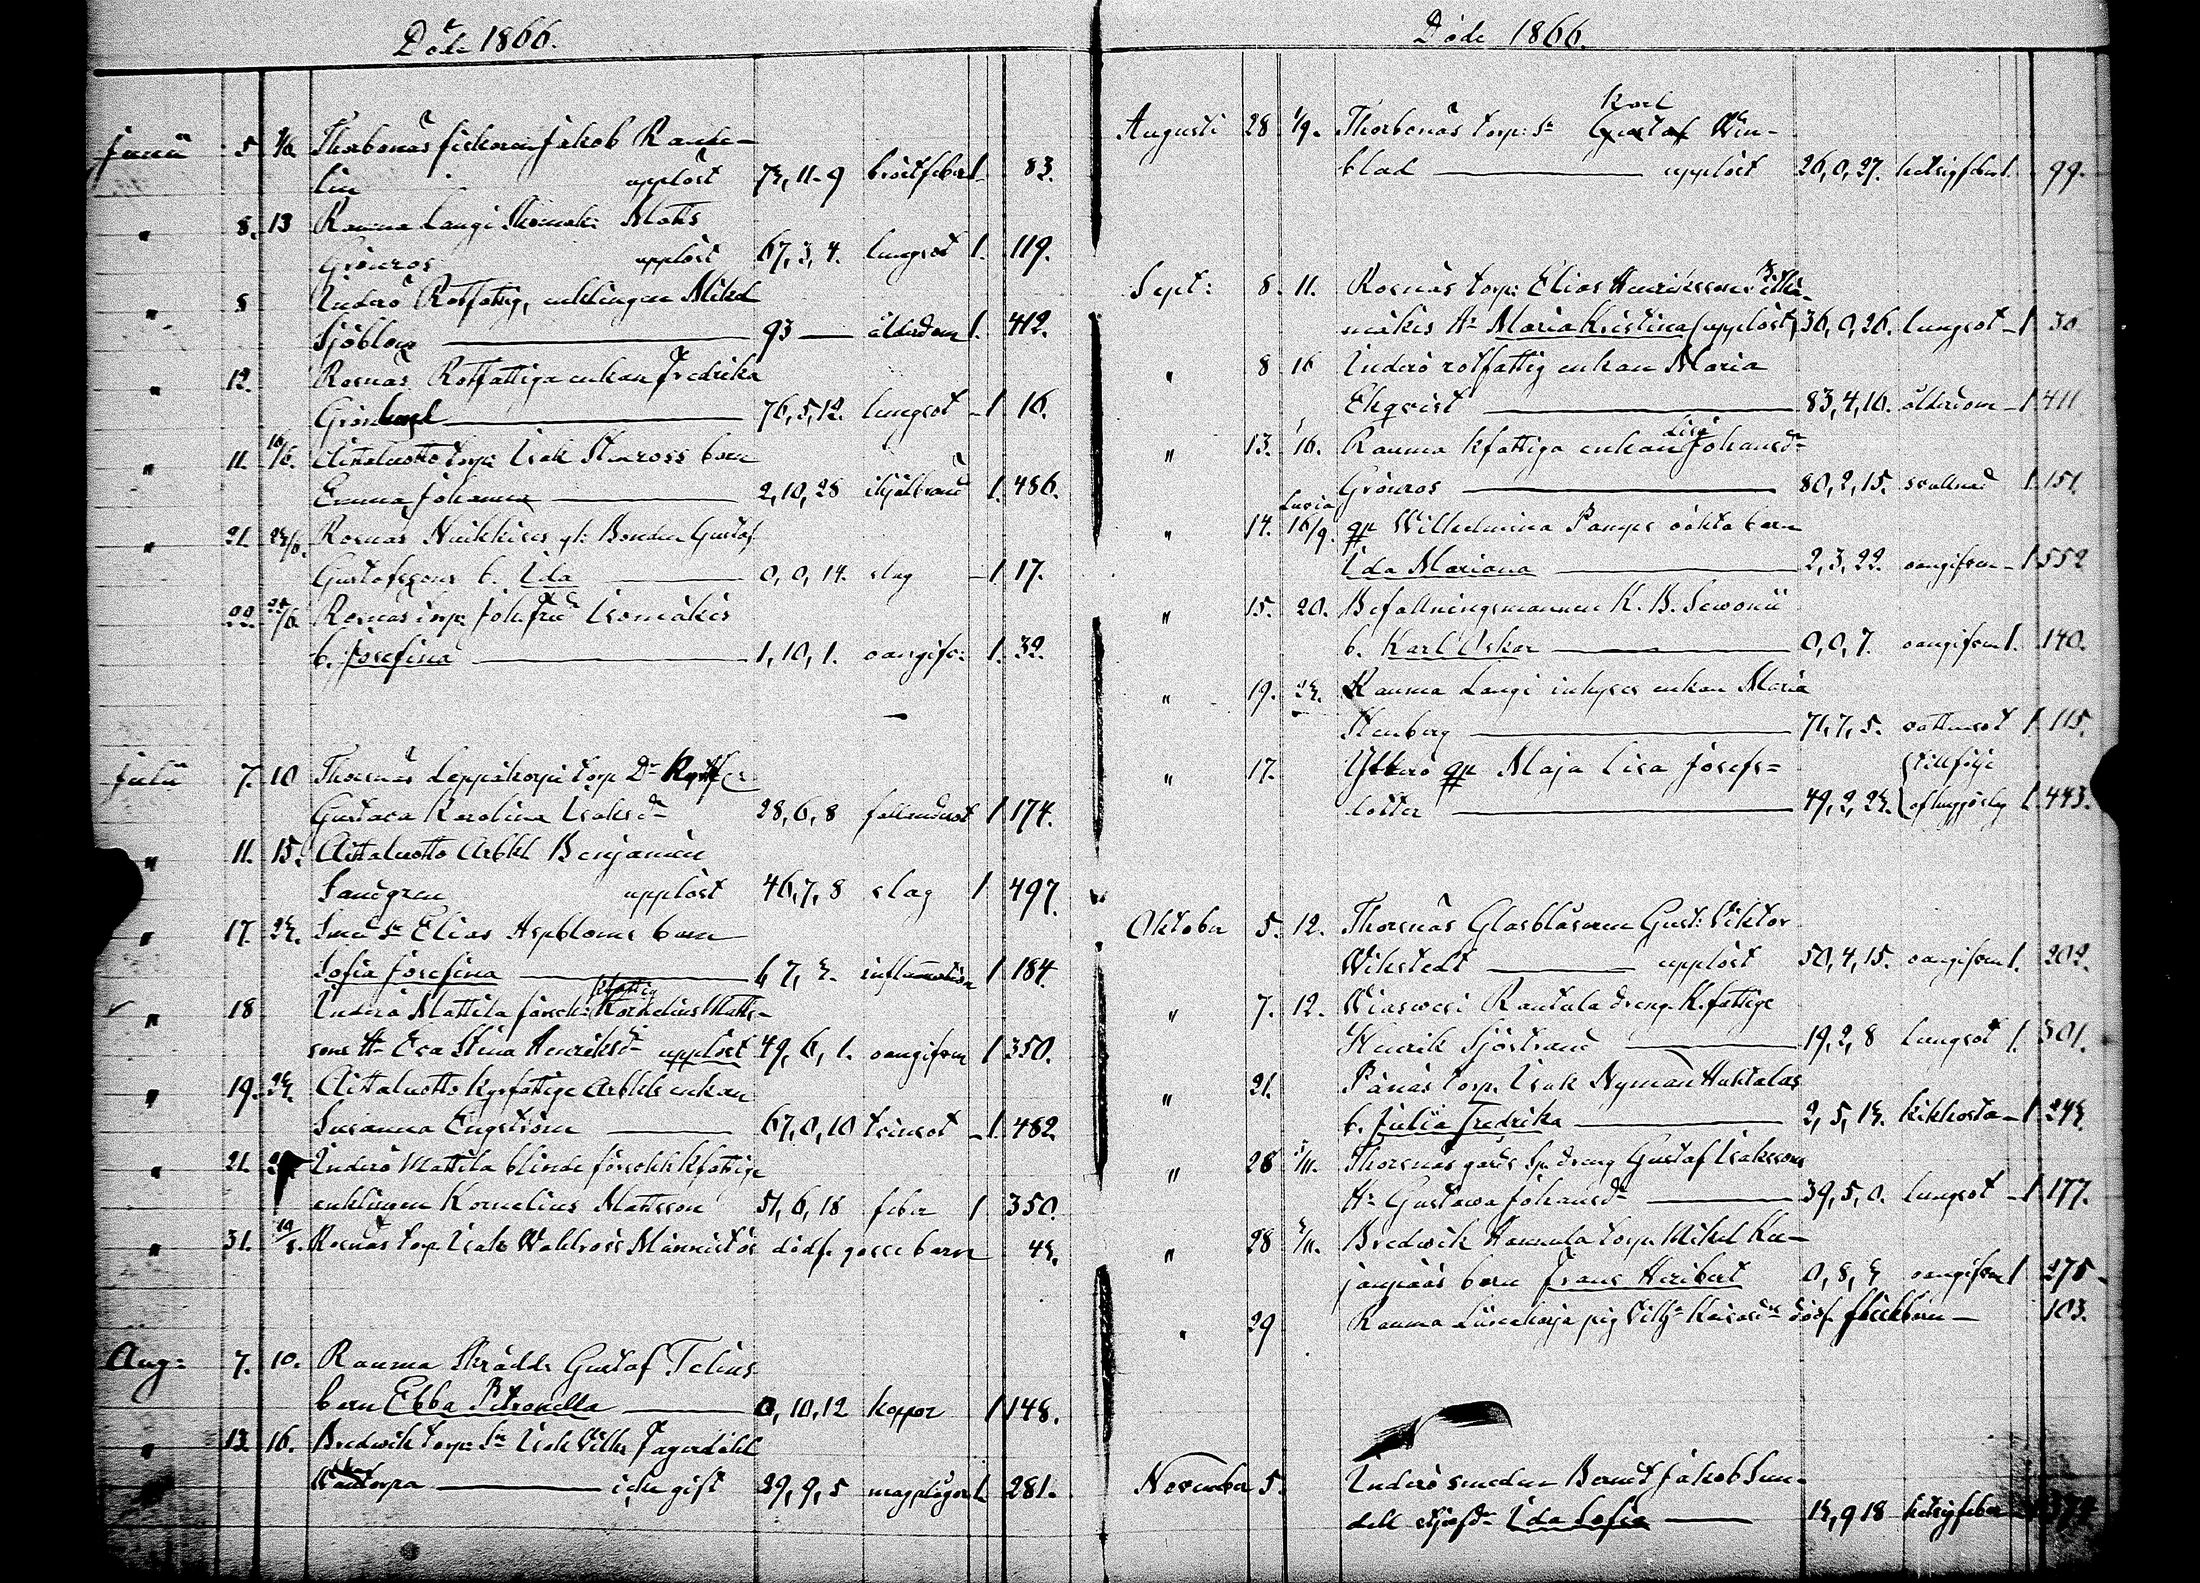 Döde 1866.
Junii 5. Thorbonäs fiskaren Jakob
lin upplöst 73, 11. 9 bröstfeber 1 83.
" 8. 13 Rauma Langi Skomak: Matts
Grönros upplöst 67, 3, 4. lungsot 1. 119.
" 8 Inderö Rotfattig, enklingen Mikel
Sjöblom 93 ålderdom 1. 412.
" 12. Rosnäs Rotfattiga enkan Fredrika
76, 5, 12. lungsot 1 16.
" 11. 16/6. Aittaluotto torp: Isak Stenross barn
Emma Johanna 2, 10, 28 ihjälbränd 1. 486.
" 21. 24/6. Rosnäs Heikkises Bonden Gustaf
Gustafssons b. Ida 0, 0, 14. slag 1. 17.
22. Rosnäs torp: Joh: Fred: Isomäkis
b. Josefina 1, 10, 1. oangifv: 1. 32.
Julii 7. 10 Thorsnäs Leppäkorpi torp Dr
Gustava Karolina Isaksdr 28, 6, 8 fallandesot 1 174.
" 11. 15. Aittaluotto Arbkl Benjamin
Sandgren upplöst 46, 7, 8 slag 1 497.
" 17. 23. Elias Aspbloms barn
Sofia Josefina 6 7, 3. inflammation 1. 184.
" 18 kfattig
Inderö Mattila Kornelius Matts-
sons Hu Eva Stina Henriksdr upplöst 49, 6, 1. oangifven 1 350.
" 19. 23. Aittaluotto kyrkfattige Arbkls enkan
Susanna Engström 67, 0, 10 tvinsot 1. 482.
" 21. Inderö Mattila blinde kfattige
enklingen Kornelius Mattsson 51, 6, 18 feber 1 350.
" 31. Rosnäs torp Isak Wahlross Männistös dödf. gosse barn 43.
Aug: 7. 10. Rauma Skrädd: Gustaf Telius
barn Ebba Petronella 0, 10, 12 koppor 1 148.
" 13 16. Bredwik torp: Sn Isak Vilh: Fagerdahl
icke gift 29, 9, 5 1. 281.
Döde 1866.
Karl
Augusti 28 1/9. Thorbonäs torp: Sn Gustaf Win-
blad upplöst 26, 0, 27. hetsigfeber 1. 99.
Sept: 8. 11. Rosnäs torp: Elias Henriksson Pitkä-
mäkis Hu Maria Kristina (upplöst) 36, 0, 26. lungsot 1 36
" 8 16 Inderö rotfattig enkan Maria
Ekqvist 83, 4, 16. ålderdom 1. 411
" 13. 16. Rauma kfattiga enkan Lisa Johansdr
Grönros 80, 2, 15. svullnad 1. 151.
Luvia
" 14. 16/9. qp Wilhelmina Panges oäkta barn
Ida Mariana 2, 3, 22. oangifven 1. 552
" 15. 20. Befallningsmannen K. B. Lewonii
b. Karl Oskar 0, 0, 7. oangifven 1. 140.
" 19. 23. Rauma Langi inhyses enkan Maria
Stenberg 71, 7, 5. vattusot 1 115.
" 17. Ytterö qp Maja Lisa Josefs=
dotter 49, 2, 23. 1. 443.
Oktober 5. 12. Thorsnäs Glasblåsaren Gust: Viktor
Wikstedt upplöst 50, 4, 15. oangifven 1. 202.
" 7. 12. Wiaswesi Rantala dreng K.fattige
Henrik Sjöstrand 19, 2, 8 lungsot 1. 301.
" 21. Pånäs torp: Isak Nyman Huhtalas
b. Julia Fredrika 2, 5, 13. kikhosta 1 243.
" 28 Thorsnäs gårds Sp. dreng Gustaf Isakssons
Hu Gustawa Johansdr 39, 5, 0. lungsot 1 177.
" 28 Bredwik Hannula torp: Mikel
barn Frans Heribert 0, 8, 3 oangifven 1 275
" 29 Rauma pig Vilhna dödf. flickbarn 103.
November 5. Inderö smeden Berndt Jakob Sun-
dell Ida Sofia 13, 9 18 hetsigfeber